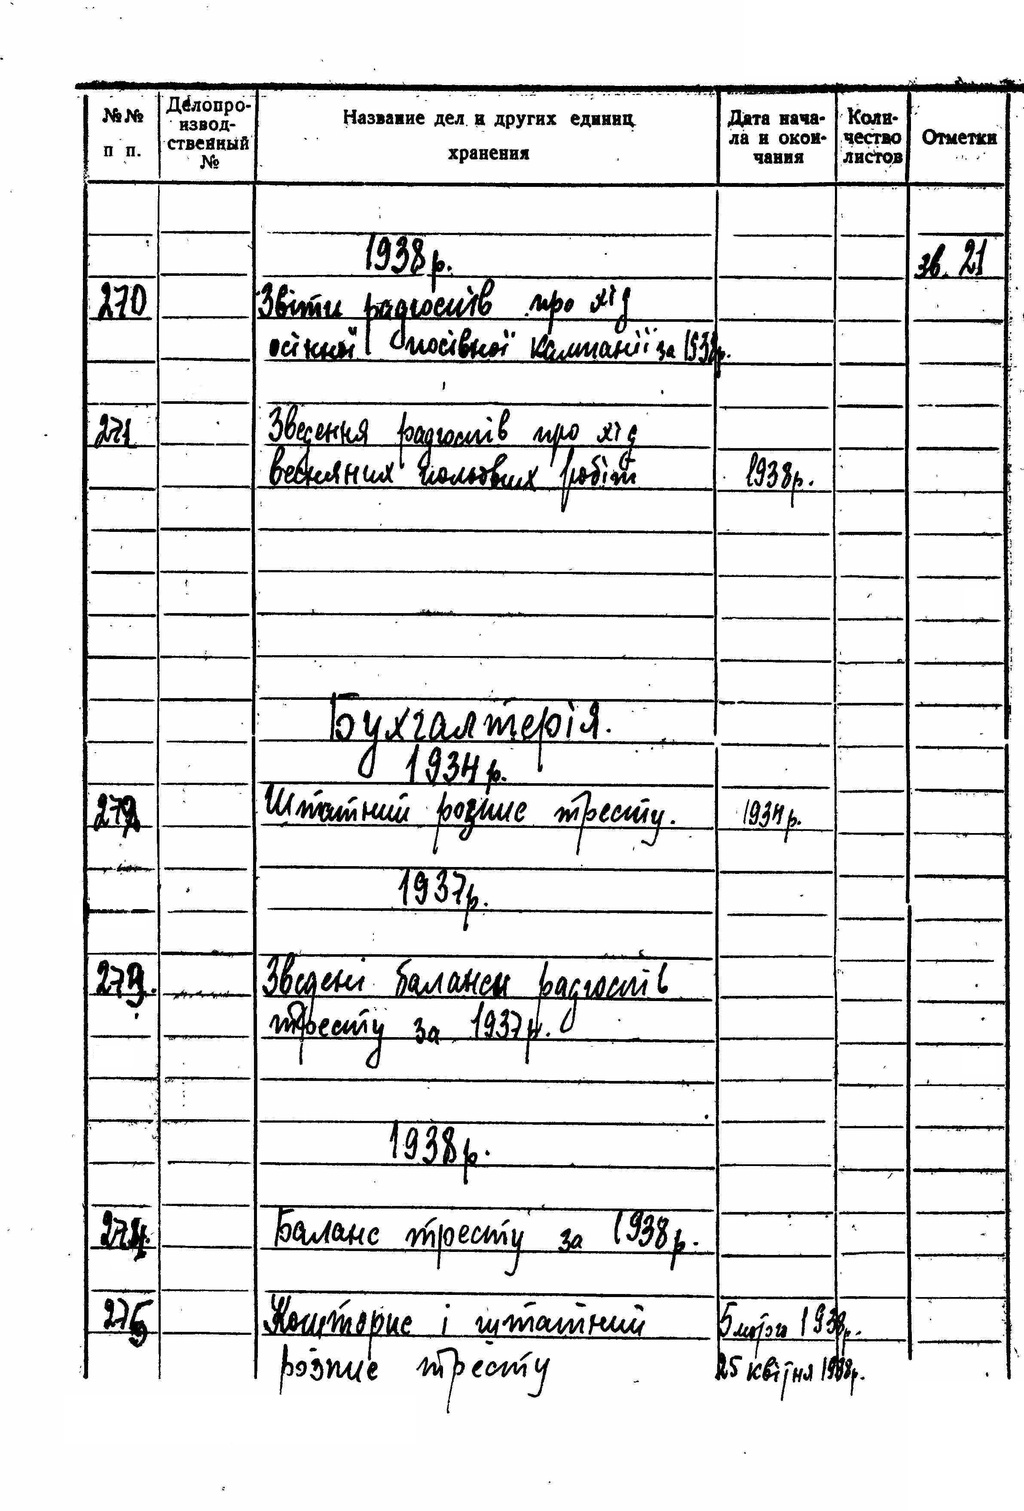 №№ п п.
Делопроизводственный №
Название дел и других единиц хранения
Дата начала и окончания
Количество листов
Отметки
1938 р.
зв. 21
270 Звіти радгоспів про хід
осінньої посівної кампанії за 1938р.
271 Зведення радгоспів про хід
весняних польових робіт 1938р.
Бухгалтерія.
1934 р.
272 Штатний розпис тресту. 1934 р.
1937р.
273. Зведені баланси радгоспів
тресту за 1937р.
1938р.
274. Баланс тресту за 1938р.
275 Кошторис і штатний 5 лютого 1938р.
розпис тресту 25 квітня 1938р.